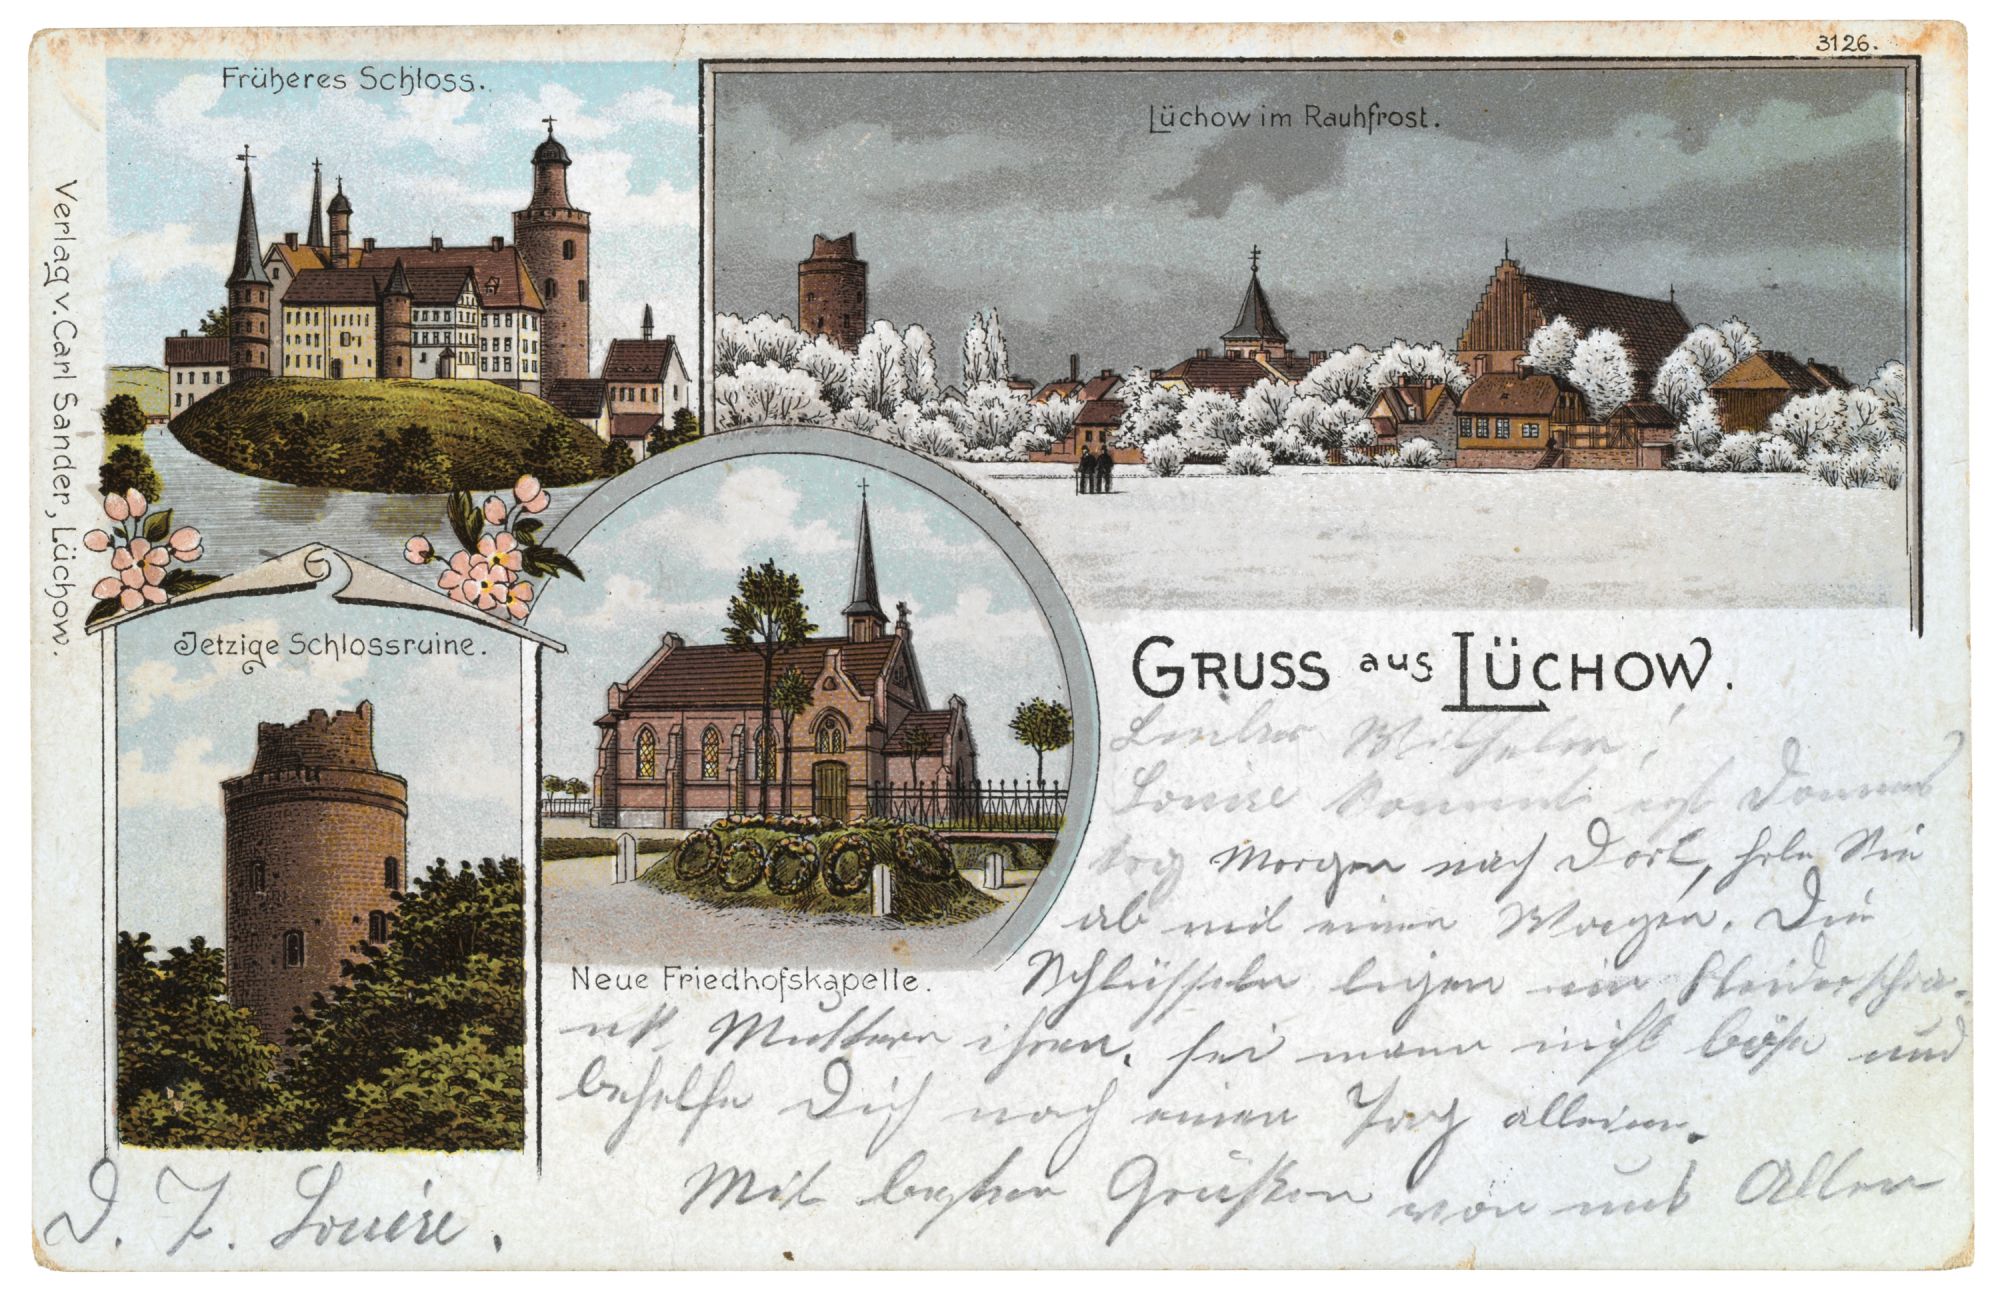 3126.
Früheres Schloss.
Lüchow im Rauhfrost.
Verlag v. Carl Sander, Lüchow.
Jetzige Schlossruine.
Neue Friedhofskapelle.
GRUSS aus LÜCHOW.
Lieber Wilhelm!
Louise kommt erst Donners
tag Morgen nach dort, hole Sie
ab mit einen Wagen. Die
Schlüsseln liegen im Kleiderschra-
nk Muttern ihren. sei man nicht böse und
behelfe Dich noch einen Tag allein.
Mit besten Grüßen von uns Allen
D. L. Louise.